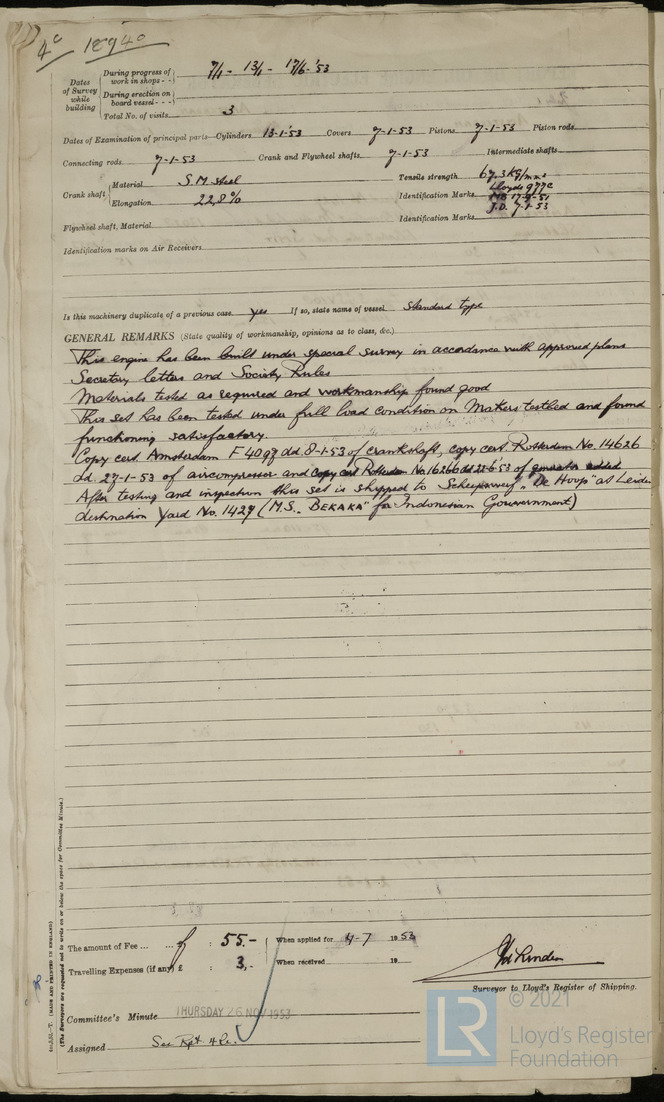 4c 18940
Dates of Survey while building
During progress of work in shops - - 7/1 - 13/1 - 17/6-'53
During erection on board vessel - - -
Total No. of visits 3
Dates of Examination of principal parts—Cylinders 13-1-53 Covers 7-1-53 Pistons 7-1-53 Piston rods
Connecting rods 7-1-53 Crank and Flywheel shafts 7-1-53 Intermediate shafts
Crank shaft Material S.M. Steel Tensile strength 67.3 kg/mm2
Elongation 22,8% Identification Marks Lloyds 977c
MB 17-9-51
J.D. 7-1-53
Flywheel shaft, Material Identification Marks
Identification marks on Air Receivers
Is this machinery duplicate of a previous case yes If so, state name of vessel Standard type
GENERAL REMARKS (State quality of workmanship, opinions as to class, &c.)
This engine has been build under special survey in accordance with approved plans
Secretary letters and Society Rules
Materials tested as required and workmanship found good
This set has been tested under full load condition on Makers testbed and found
functioning satisfactory.
Copy cert. Amsterdam F 4099 dd. 8-1-53 of crankshaft, copy cert. Rotterdam No. 14626
dd. 27-1-53 of aircompressor and copy cert Rotterdam No 16266 dd 22-6-53 of generator added
After testing and inspection this set is shipped to Scheepswerf "De Hoop" at Leiden
destination Yard No. 1429 (M.S. "BEKAKA" for Indonesian Gouvernment)
The amount of Fee ... ... f : 55.- When applied for 4-7 1953
Travelling Expenses (if any) £ : 3,- When received 19
Surveyor to Lloyd's Register of Shipping.
Committee's Minute THURSDAY 26 NOV 1953
Assigned See Rpt 4c.
(MADE AND PRINTED IN ENGLAND)
(The Surveyors are requested not to write on or below the space for Committee Minute.)
LR © 2021
Lloyd's Register
Foundation